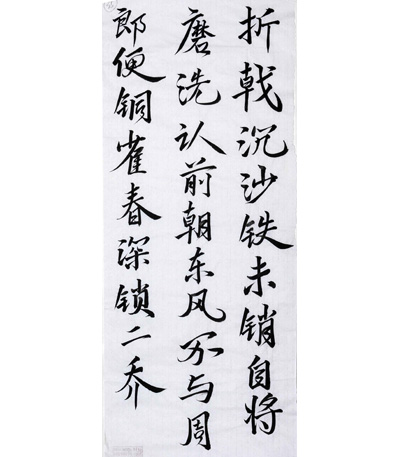 折戟沉沙铁未销自将
磨洗认前朝东风不与周
郎便铜雀春深锁二乔